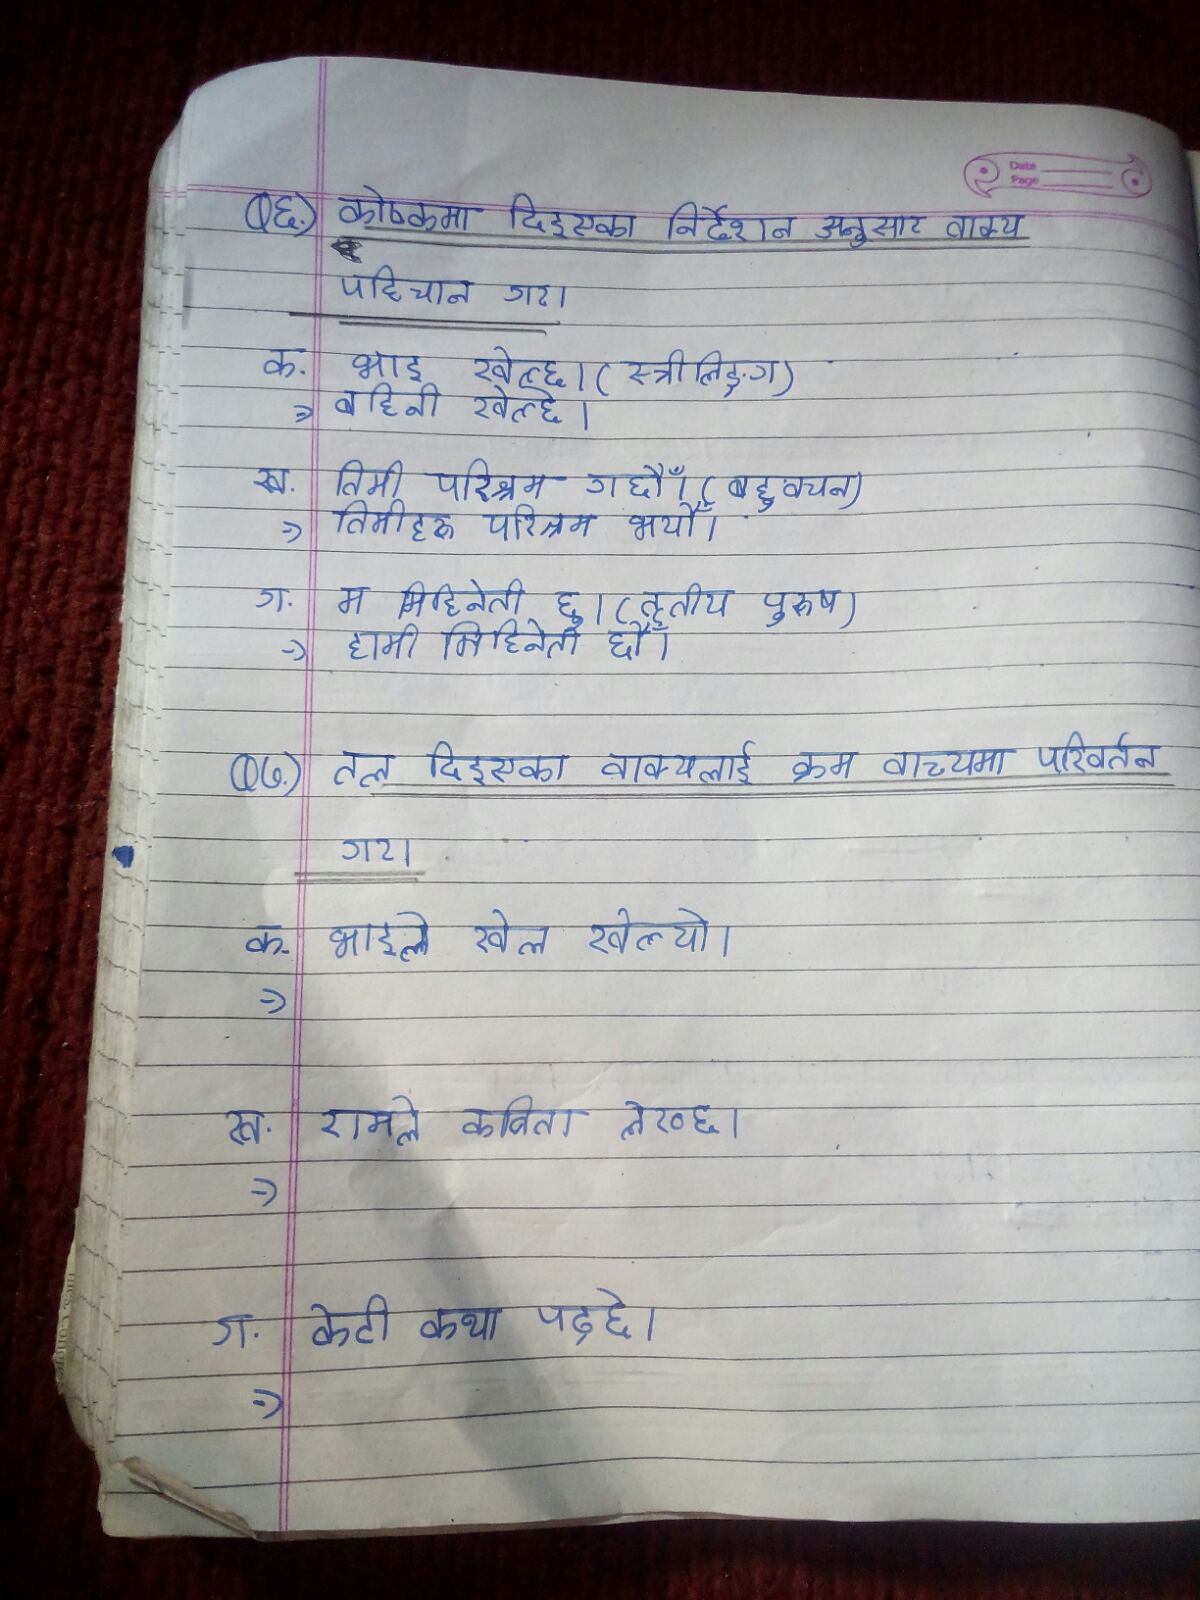 Date
Page
Q६.) कोष्कमा दिइएका निर्देशन अनुसार वाक्य
पहिचान गर।
क. भाइ खेल्छ। (स्त्रीलिङ्ग)
⇒ बहिनी खेल्छे।
ख. तिमी परिश्रम गर्छौँ। (बहुवचन)
⇒ तिमीहरु परिश्रम भयौँ।
ग. म मिहिनेती छु। (तृतीय पुरुष)
⇒ हामी मिहिनेती छौँ।
Q७.) तल दिइएका वाक्यलाई क्रम वाच्यमा परिवर्तन
गर।
क. भाइले खेल खेल्यो।
⇒
ख. रामले कविता लेख्छ।
⇒
ग. केटी कथा पढ्छे।
⇒